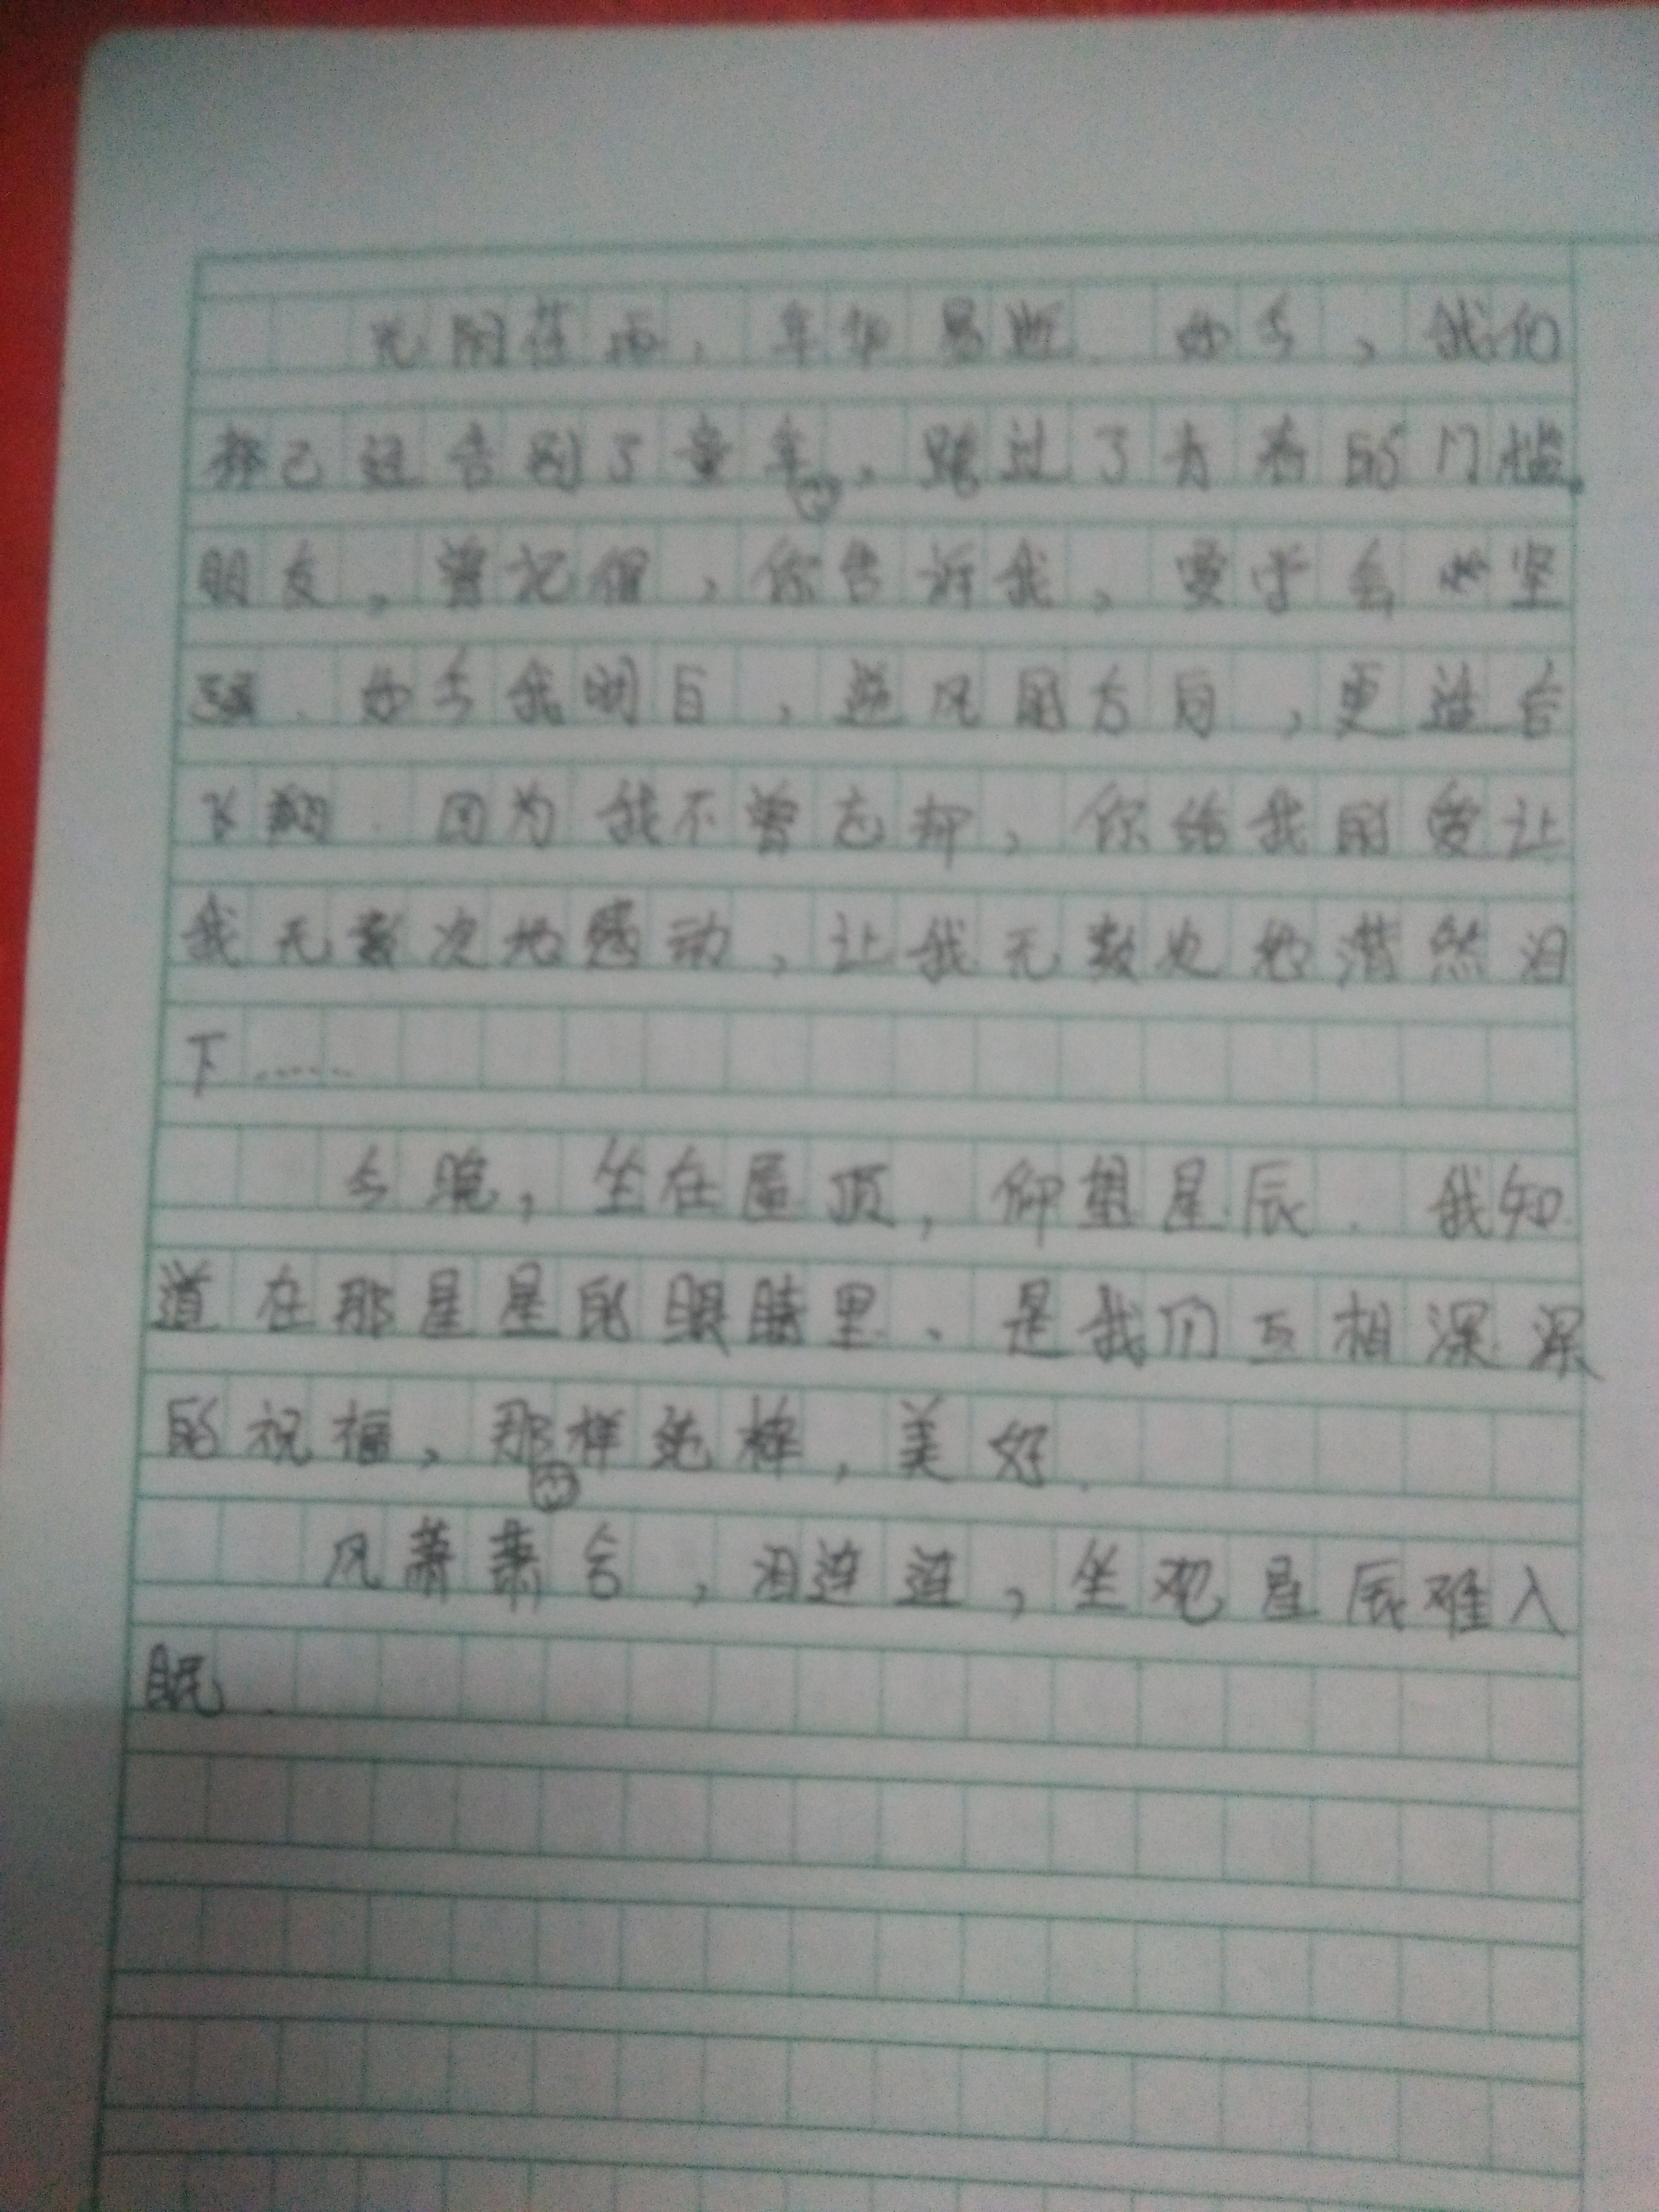 光阴荏苒，年华易逝．如今，我们
都已经告别了童年，踏过了青春的门槛。
朋友，曾记得，你告诉我，要学会坚
强．如今我明白，逆风的方向，更适合
飞翔．因为我不曾忘却，你给我的爱让
我无数次地感动，让我无数次地潸然泪
下……
今晚，坐在屋顶，仰望星辰．我知
道在那星星的眼睛里、是我们互相深深
的祝福，那样纯粹，美好．
风萧萧兮，泪连连，坐观星辰难入
眠．